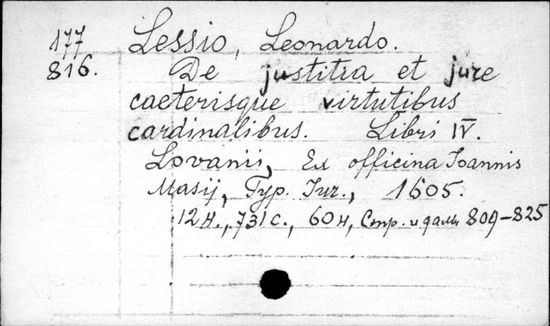 177 Lessio, Leonardo.
816. De justitia et jure
caeterisque virtutibus
cardinalibus. Libri IV.
Lovanii, Ex officina Ioannis
Masij, Typ. Iur., 1605.
12 н., 731 с., 60 н, Стр. и 809-825